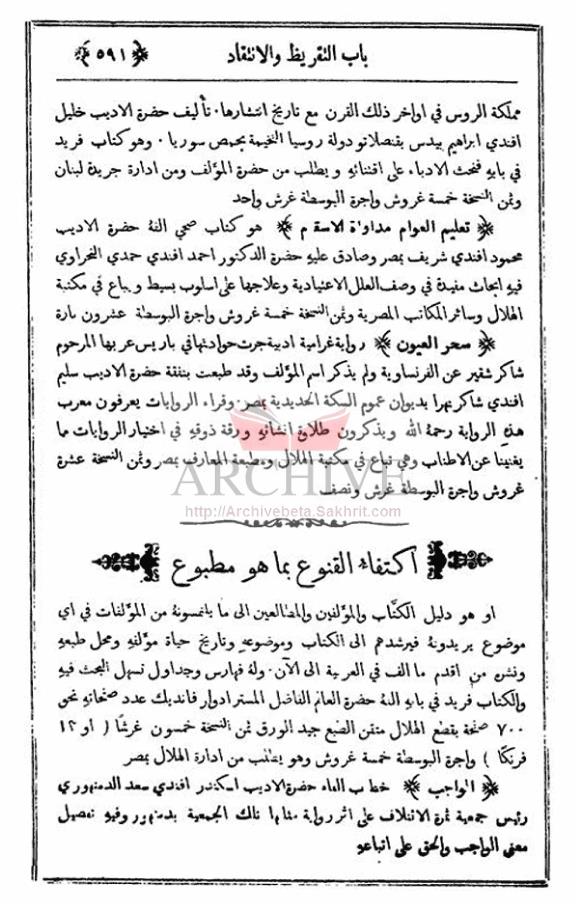 باب التقريظ والانتقاد ﴿٥٩١﴾
مملكة الروس في اواخر ذلك القرن مع تاريخ انتشارها · تأليف حضرة الاديب خليل
افندي ابراهيم بيدس بقنصلاتو دولة روسيا الفخيمة بحمص سوريا · وهو كتاب فريد
في بابهِ فنحث الادباء على اقتنائهِ ويطلب من حضرة المؤلف ومن ادارة جريدة لبنان
وثمن النسخة خمسة غروش واجرة البوسطة غرش واحد
﴿ تعليم العوام مداواة الاسقام ﴾ هو كتاب صحي الفهُ حضرة الاديب
محمود افندي شريف بمصر وصادق عليهِ حضرة الدكتور احمد افندي حمدي النخراوي
فيهِ ابحاث مفيدة في وصف العلل الاعتيادية وعلاجها على اسلوب بسيط ويباع في مكتبة
الهلال وسائر المكاتب المصرية وثمن النسخة خمسة غروش واجرة البوسطة عشرون بارة
﴿ سحر العيون ﴾ رواية غرامية ادبية جرت حوادثها في باريس عربها المرحوم
شاكر شقير عن الفرنساوية ولم يذكر اسم المؤلف وقد طبعت بنفقة حضرة الاديب سليم
افندي شاكر بهرا بديوان عموم السكة الحديدية بمصر · وقراء الروايات يعرفون معرب
هذه الرواية رحمهُ الله ويذكرون طلاوة انشائهِ ورقة ذوقهِ في اختيار الروايات مما
يغنينا عن الاطناب وهي تباع في مكتبة الهلال ومطبعة المعارف بمصر وثمن النسخة عشرة
غروش واجرة البوسطة غرش ونصف
ARCHIVE
http://Archivebeta.Sakhrit.com
اكتفاء القنوع بما هو مطبوع
او هو دليل الكتَّاب والمؤلفين والمطالعين الى ما يلتمسونهُ من المؤلفات في اي
موضوع يريدونهُ فيرشدهم الى الكتاب وموضوعهِ وتاريخ حياة مؤلفهِ ومحل طبعهِ
ونشره من اقدم ما الف في العربية الى الآن · ولهُ فهارس وجداول تسهل البحث فيهِ
والكتاب فريد في بابهِ الفهُ حضرة العالم الفاضل المستر ادوار فانديك عدد صفحاتهِ نحو
٧٠٠ صفحة بقطع الهلال متقن الطبع جيد الورق ثمن النسخة خمسون غرشًا ( او ١٢
فرنكًا ) واجرة البوسطة خمسة غروش وهو يطلب من ادارة الهلال بمصر
﴿ الواجب ﴾ خطاب القاه حضرة الاديب اسكندر افندي سعد الدمنهوري
رئيس جمعية ثمرة الائتلاف على اثر رواية مثلتها تلك الجمعية بدمنهور وفيهِ تفصيل
معنى الواجب والحق على اتباعهِ